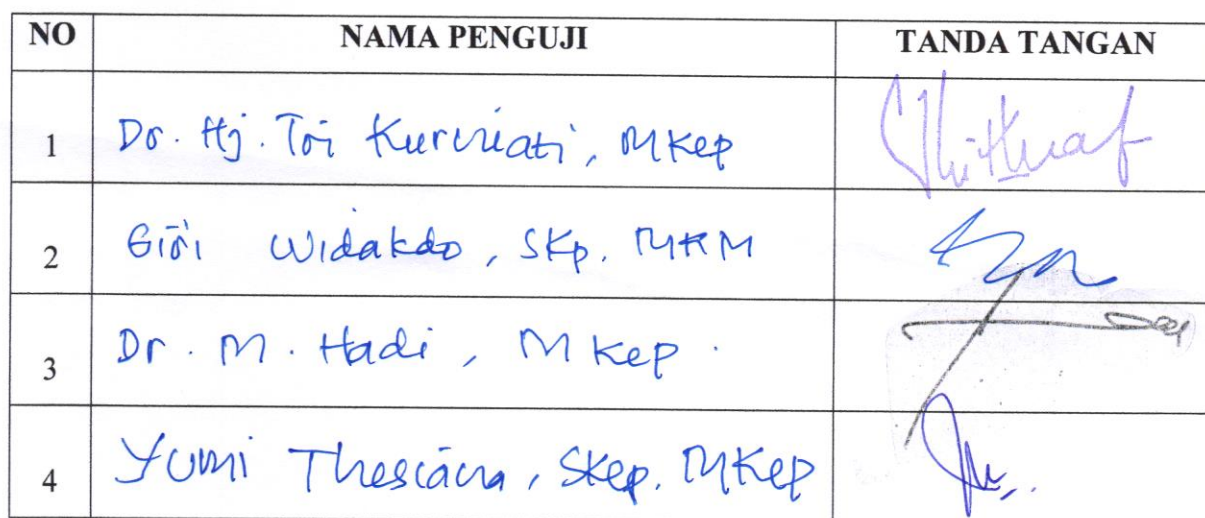 NO NAMA PENGUJI TANDA TANGAN
1 Dr. Hj. Tri Kurniati, MKep
2 Giri Widakdo, SKp. MKM
3 Dr. M. Hadi, MKep.
4 Yumi Thesiana, SKep. MKep